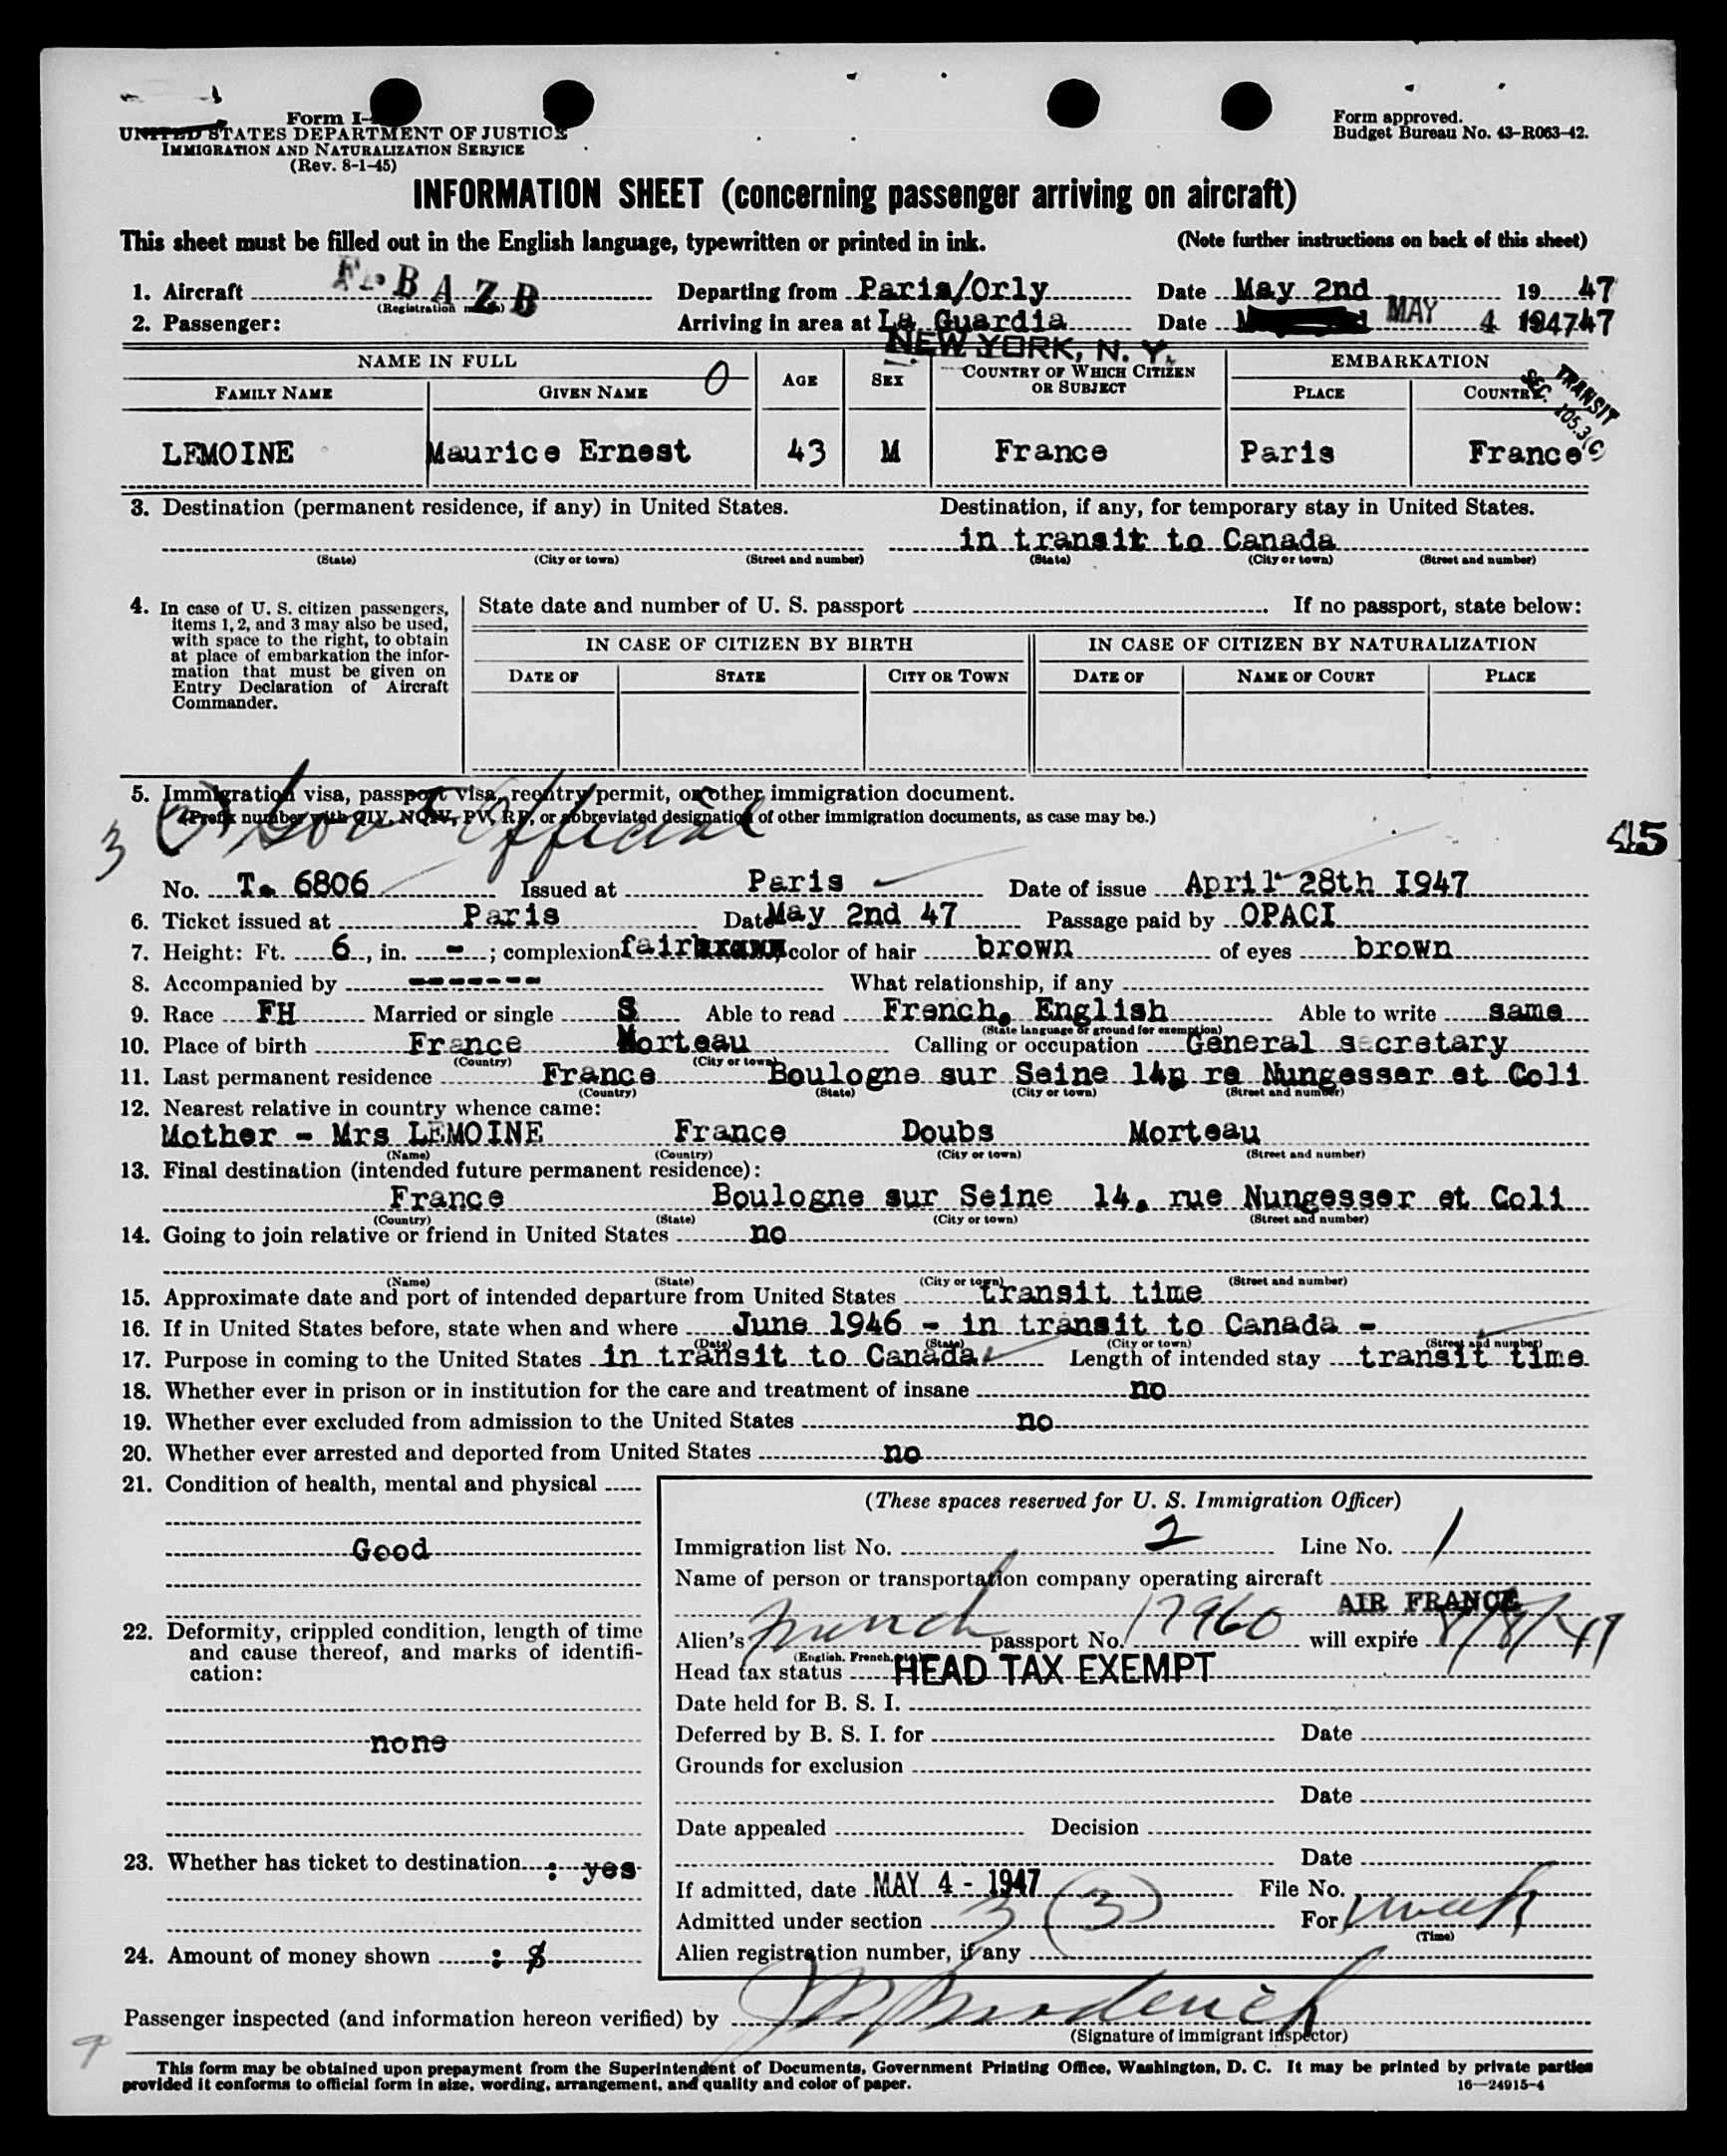 Form I-
UNITED STATES DEPARTMENT OF JUSTICE
IMMIGRATION AND NATURALIZATION SERVICE
(Rev. 8-1-45)
Form approved.
Budget Bureau No. 43-R063-42.
INFORMATION SHEET (concerning passenger arriving on aircraft)
This sheet must be filled out in the English language, typewritten or printed in ink. (Note further instructions on back of this sheet)
1. Aircraft F-BAZB Departing from Paris/Orly Date May 2nd 19 47
(Registration
2. Passenger: Arriving in area at La Guardia Date MAY 4 1947 47
NEW YORK, N. Y.
NAME IN FULL 0 AGE SEX COUNTRY OF WHICH CITIZEN OR SUBJECT EMBARKATION
FAMILY NAME GIVEN NAME PLACE COUNTRY
TRANSIT
SEC. 105.3(C)
LEMOINE Maurice Ernest 43 M France Paris France
3. Destination (permanent residence, if any) in United States. Destination, if any, for temporary stay in United States.
in transit to Canada
(State) (City or town) (Street and number) (State) (City or town) (Street and number)
4. In case of U. S. citizen passengers, items 1, 2, and 3 may also be used, with space to the right, to obtain at place of embarkation the information that must be given on Entry Declaration of Aircraft Commander.
State date and number of U. S. passport If no passport, state below:
IN CASE OF CITIZEN BY BIRTH IN CASE OF CITIZEN BY NATURALIZATION
DATE OF STATE CITY OR TOWN DATE OF NAME OF COURT PLACE
5. Immigration visa, passport visa, reentry permit, or other immigration document.
(Prefix number with QIV, NQIV, PV, RP, or abbreviated designation of other immigration documents, as case may be.)
3 (3) Gov Official
45
No. T. 6806 Issued at Paris Date of issue April 28th 1947
6. Ticket issued at Paris Date May 2nd 47 Passage paid by OPACI
7. Height: Ft. 6, in. - ; complexion fair color of hair brown of eyes brown
8. Accompanied by ------- What relationship, if any
9. Race FH Married or single S Able to read French, English Able to write same
(State language or ground for exemption)
10. Place of birth France Morteau Calling or occupation General secretary
(Country) (City or town)
11. Last permanent residence France Boulogne sur Seine 14p re Nungesser et Coli
(Country) (State) (City or town) (Street and number)
12. Nearest relative in country whence came:
Mother - Mrs LEMOINE France Doubs Morteau
(Name) (Country) (City or town) (Street and number)
13. Final destination (intended future permanent residence):
France Boulogne sur Seine 14, rue Nungesser et Coli
(Country) (State) (City or town) (Street and number)
14. Going to join relative or friend in United States no
(Name) (State) (City or town) (Street and number)
15. Approximate date and port of intended departure from United States transit time
16. If in United States before, state when and where June 1946 - in transit to Canada -
(Date) (State) (City or town) (Street and number)
17. Purpose in coming to the United States in transit to Canada Length of intended stay transit time
18. Whether ever in prison or in institution for the care and treatment of insane no
19. Whether ever excluded from admission to the United States no
20. Whether ever arrested and deported from United States no
21. Condition of health, mental and physical
Good
22. Deformity, crippled condition, length of time and cause thereof, and marks of identification:
none
23. Whether has ticket to destination : yes
24. Amount of money shown : $
(These spaces reserved for U. S. Immigration Officer)
Immigration list No. 2 Line No. 1
Name of person or transportation company operating aircraft
AIR FRANCE
Alien's French passport No. 17960 will expire
(English, French, etc.)
Head tax status HEAD TAX EXEMPT
Date held for B. S. I.
Deferred by B. S. I. for Date
Grounds for exclusion
Date
Date appealed Decision
Date
If admitted, date MAY 4 - 1947 File No.
Admitted under section 3 (3) For 1 week
(Time)
Alien registration number, if any
Passenger inspected (and information hereon verified) by
(Signature of immigrant inspector)
This form may be obtained upon prepayment from the Superintendent of Documents, Government Printing Office, Washington, D. C. It may be printed by private parties
provided it conforms to official form in size, wording, arrangement, and quality and color of paper. 16—24915-4